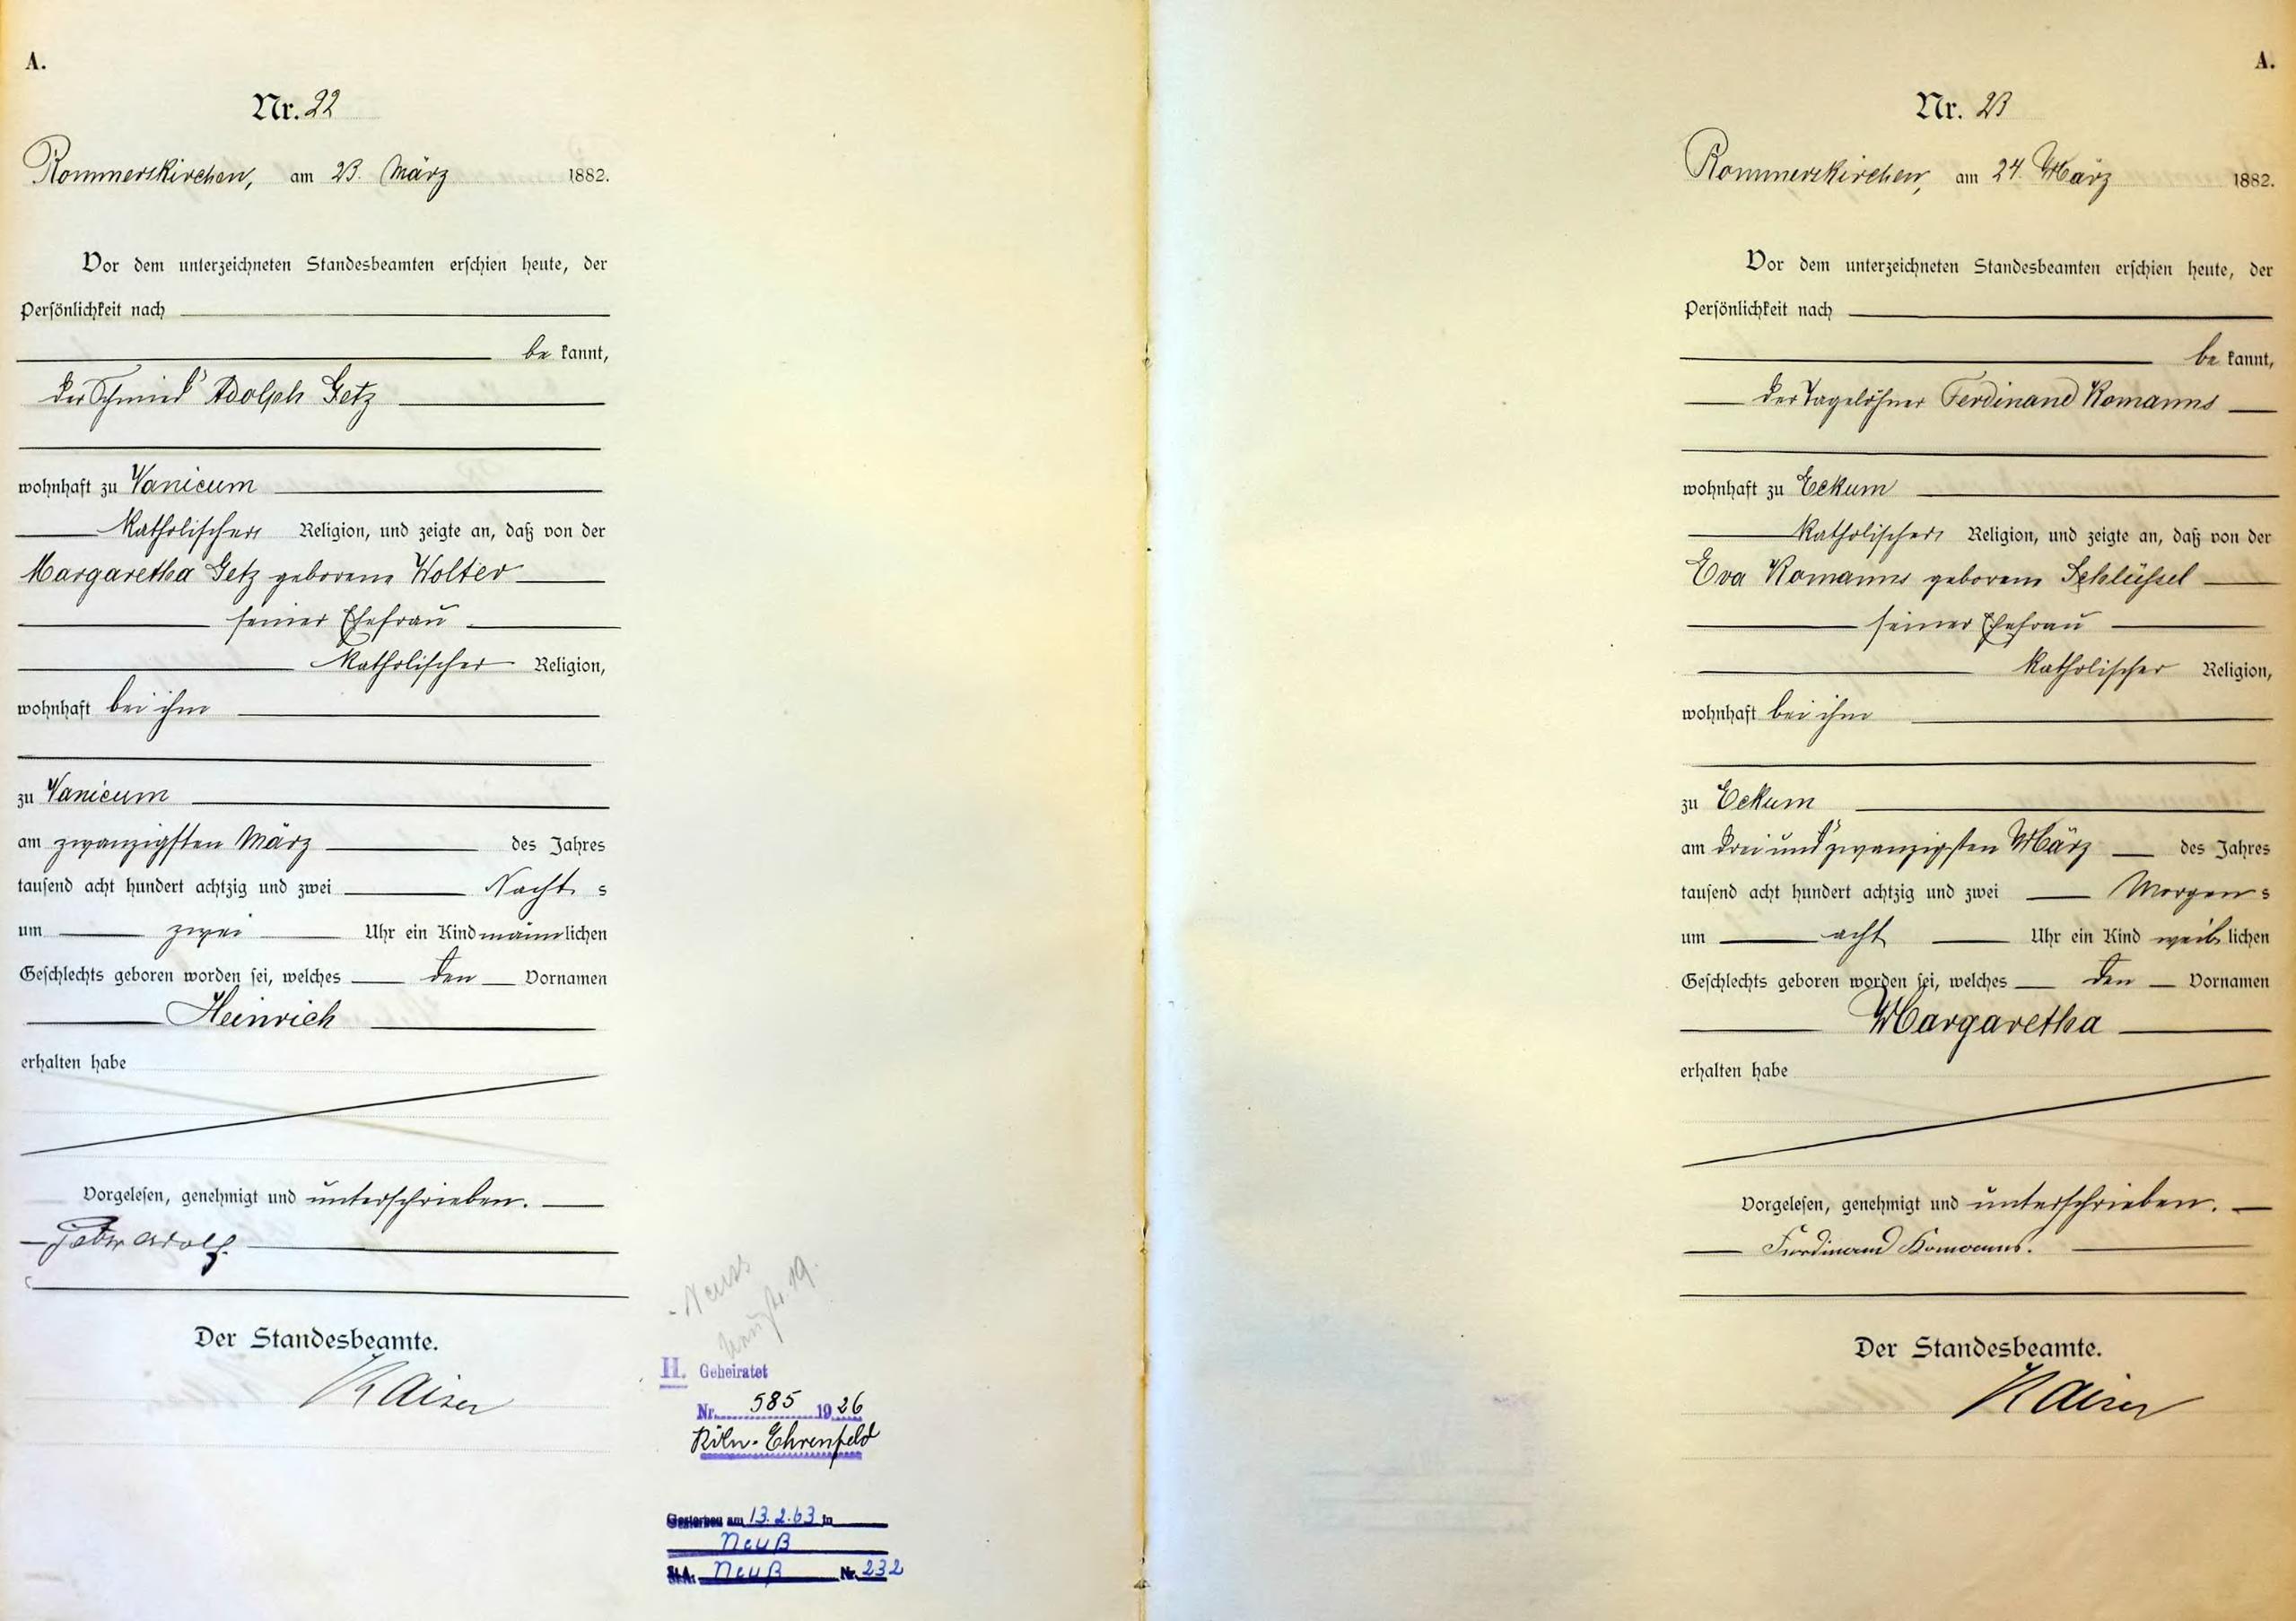 A.
Nr. 22
Rommerskirchen, am 23. März 1882.
Vor dem unterzeichneten Standesbeamten erschien heute, der
Persönlichkeit nach
be kannt,
der Schmied Adolph Getz
wohnhaft zu Vanicum
katholischer Religion, und zeigte an, daß von der
Margaretha Getz geborene Wolter
seiner Ehefrau
katholischer Religion,
wohnhaft bei ihm
zu Vanicum
am zwanzigsten März des Jahres
tausend acht hundert achtzig und zwei Nacht s
um zwei Uhr ein Kind männlichen
Geschlechts geboren worden sei, welches den Vornamen
Heinrich
erhalten habe
Vorgelesen, genehmigt und unterschrieben.
Adolf
Der Standesbeamte.
Kaiser
Neuss
19.
II. Geheiratet
Nr. 585 1926
Köln-Ehrenfeld
Gestorben am 13.2.63 in
Neuß
St.A. Neuß Nr. 232
A.
Nr. 23
Rommerskirchen, am 24. März 1882.
Vor dem unterzeichneten Standesbeamten erschien heute, der
Persönlichkeit nach
be kannt,
der Tagelöhner Ferdinand Komanns
wohnhaft zu Eckum
katholischer Religion, und zeigte an, daß von der
Eva Komanns geborene Schlüssel
seiner Ehefrau
katholischer Religion,
wohnhaft bei ihm
zu Eckum
am drei und zwanzigsten März des Jahres
tausend acht hundert achtzig und zwei Morgen s
um acht Uhr ein Kind weiblichen
Geschlechts geboren worden sei, welches den Vornamen
Margaretha
erhalten habe
Vorgelesen, genehmigt und unterschrieben.
Ferdinand Komanns.
Der Standesbeamte.
Kaiser